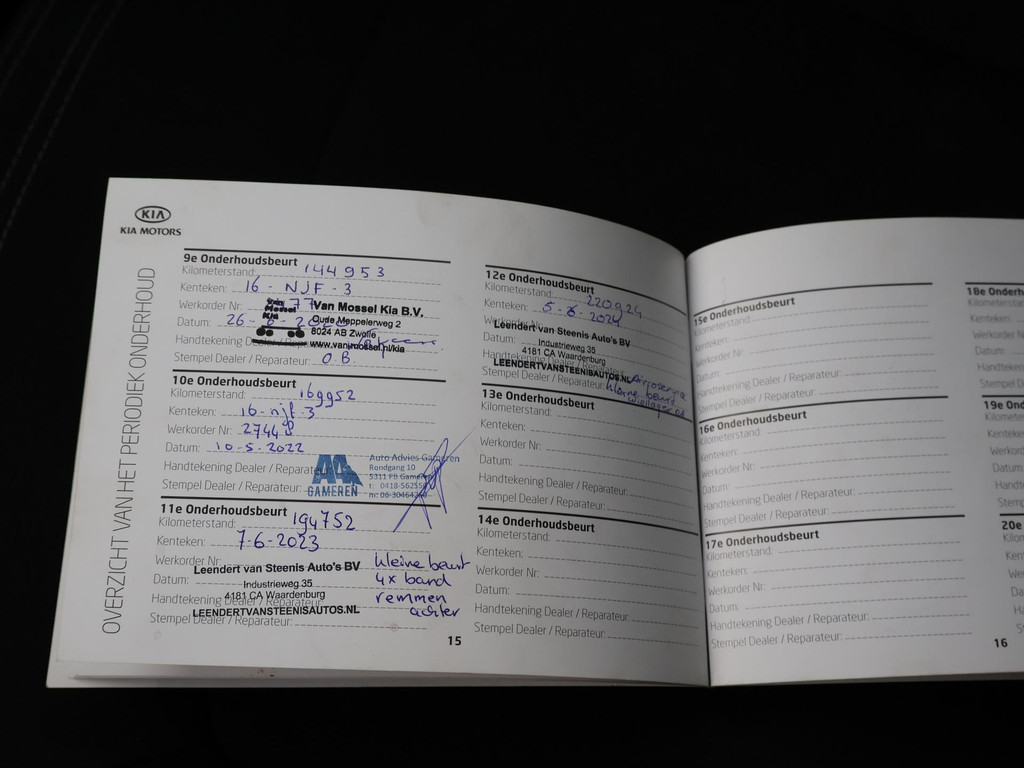 KIA
KIA MOTORS
OVERZICHT VAN HET PERIODIEK ONDERHOUD
9e Onderhoudsbeurt
Kilometerstand: 144953
Kenteken: 16-NJF-3
Werkorder Nr: 77
Van Mossel Kia B.V.
Datum: 26-6-
Oude Meppelerweg 2
8024 AB Zwolle
Handtekening Dealer / Reparateur:
www.vanmossel.nl/kia
Stempel Dealer / Reparateur: O.B.
10e Onderhoudsbeurt
Kilometerstand: 169952
Kenteken: 16-njf-3
Werkorder Nr: 27448
Datum: 10-5-2022
Handtekening Dealer / Reparateur:
Stempel Dealer / Reparateur:
AA GAMEREN
Auto Advies Gameren
Rondgang 10
5311 PB Gameren
11e Onderhoudsbeurt
Kilometerstand: 194752
Kenteken: 7-6-2023
Werkorder Nr:
Leendert van Steenis Auto's BV
Datum:
Industrieweg 35
4181 CA Waardenburg
Handtekening Dealer / Reparateur:
LEENDERTVANSTEENISAUTOS.NL
Stempel Dealer / Reparateur:
kleine beurt
4x band
remmen
achter
15
12e Onderhoudsbeurt
Kilometerstand: 220924
Kenteken: 5-6-2024
Werkorder Nr:
Leendert van Steenis Auto's BV
Datum:
Industrieweg 35
4181 CA Waardenburg
Handtekening Dealer / Reparateur:
LEENDERTVANSTEENISAUTOS.NL
Stempel Dealer / Reparateur:
kleine beurt
13e Onderhoudsbeurt
Kilometerstand:
Kenteken:
Werkorder Nr:
Datum:
Handtekening Dealer / Reparateur:
Stempel Dealer / Reparateur:
14e Onderhoudsbeurt
Kilometerstand:
Kenteken:
Werkorder Nr:
Datum:
Handtekening Dealer / Reparateur:
Stempel Dealer / Reparateur:
15e Onderhoudsbeurt
Kilometerstand:
Kenteken:
Werkorder Nr:
Datum:
Handtekening Dealer / Reparateur:
Stempel Dealer / Reparateur:
16e Onderhoudsbeurt
Kilometerstand:
Kenteken:
Werkorder Nr:
Datum:
Handtekening Dealer / Reparateur:
Stempel Dealer / Reparateur:
17e Onderhoudsbeurt
Kilometerstand:
Kenteken:
Werkorder Nr:
Datum:
Handtekening Dealer / Reparateur:
Stempel Dealer / Reparateur:
18e Onderhoudsb
Kilometerstan
Kenteken:
Werkorder N
Datum:
Handteken
Stempel D
19e Onde
Kilomete
Kenteke
Werkor
Datum
Handt
Stem
20e
Kilo
Ke
W
D
H
16